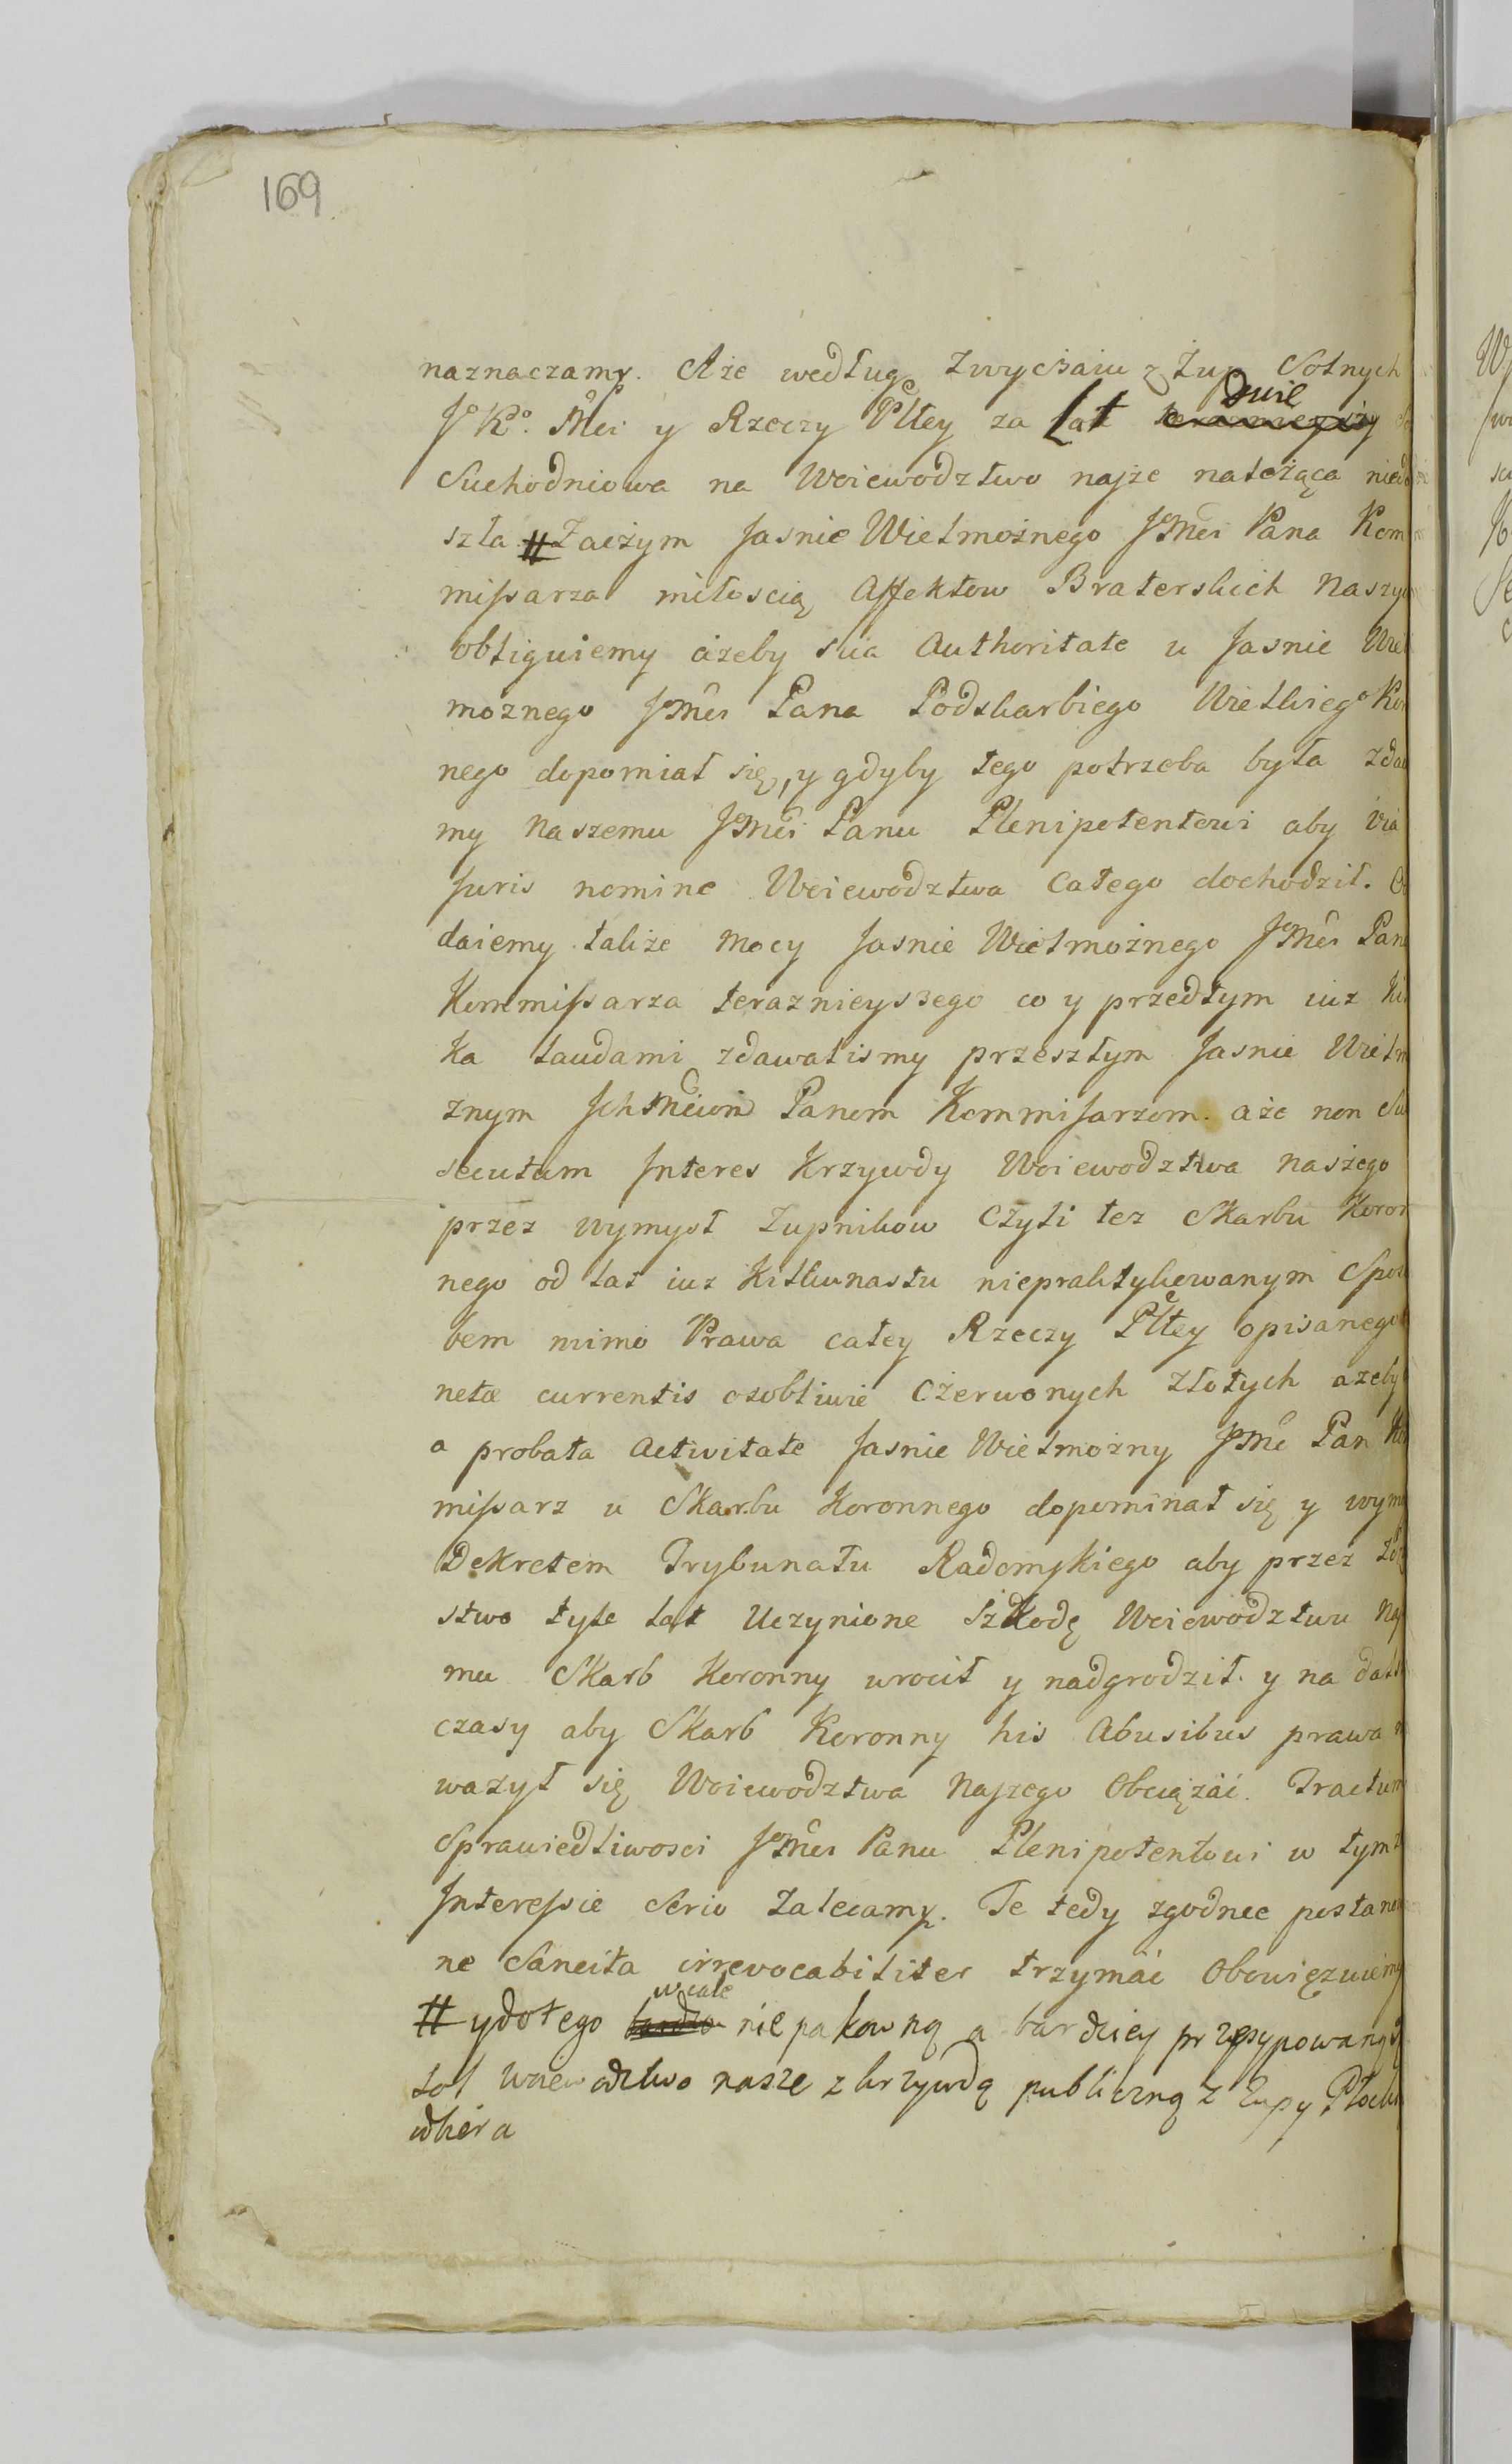 169
naznaczamy. Aże według Zwyczaiu z Żup Solnych
JKo. Mci y Rzeczy Pltey za Lat dwie
Suchodniowa na Woiewodztwo nasze należąca niedo
szła # Zaczym Jasnie Wielmożnego JMci Pana Kom
missarza miłoscią Affektow Braterskich Naszy
obliguiemy ażeby sua Authoritate u Jasnie Wiel
możnego JMci Pana Podskarbiego Wielkiego Kor
nego dopomiał się, y gdyby tego potrzeba była zda
my Naszemu JMci Panu Plenipotentowi aby via
Juris nomine Woiewodztwa Całego dochodził.
daiemy także Mocy Jasnie Wielmożnego JMci Pana
Kommissarza teraznieyszego co y przedtym iuz Kil
ka laudami zdawalismy przeszłym Jasnie Wielm
żnym IchMciom Panom Kommisarzom. aże non Su
secutam Interes Krzywdy Woiewodztwa naszego
przez wymysł Zupnikow Czyli tez Skarbu Koron
nego od lat iuz Kilkunastu niepraktykowanym Spos
bem mimo Prawa całey Rzeczy Pltey opisanego
netæ currentis osobliwie Czerwonych Złotych azeby
a probata Activitate Jasnie Wielmożny JMć Pan Ko
missarz u Skarbu Koronnego dopominał się y wym
Dekretem Trybunału Radomskiego aby przez
stwo tyle lat Uczynione Szkodę Woiewodztwu Na
mu Skarb Koronny wrocił y nadgrodził. y na dals
czasy aby Skarb Koronny his Abusibus prawa
ważył się Woiewodztwa Naszego Obciążać. Tractum
Sprawiedliwosci JMci Panu Plenipotentowi w tym
Interessie Serio Zalecamy. Te tedy zgodnie postano
ne Sancita irrevocabiliter trzymać Obowięzuiemy
wcale
# y do tego nie pakowną a bardziey przesypowaną
sol Woiewodztwo nasze z krzywdą publiczną z Zupy
odbiera